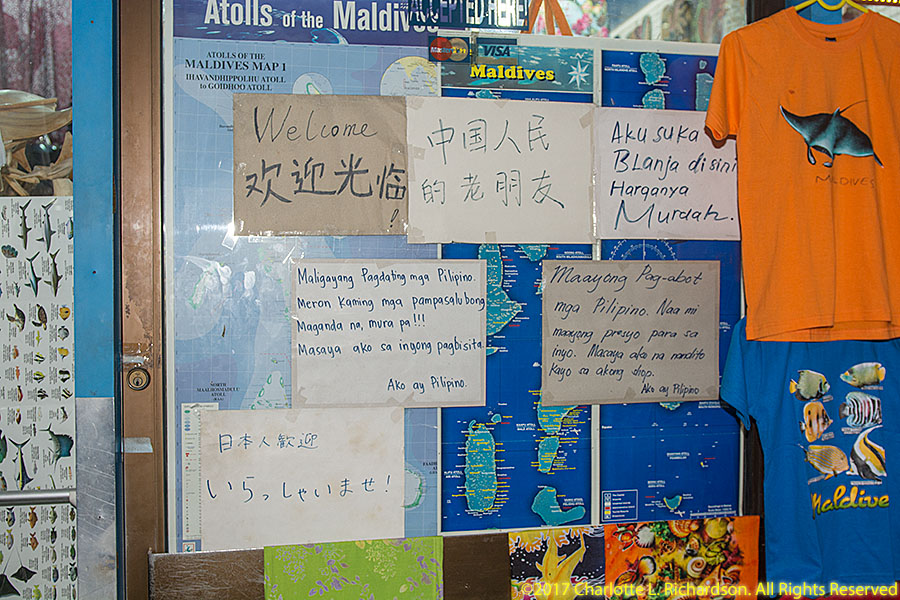 Atolls of the Maldives
ACCEPTED HERE
ATOLLS OF THE
MALDIVES MAP 1
IHAVANDHIPPOLHU ATOLL
to GOIDHOO ATOLL
MasterCard
VISA
Maldives
Welcome
欢迎光临!
中国人民
的老朋友
Aku suka
BLanja disini
Harganya
Murdah.
MALDIVES
Maligayang Pagdating mga Pilipino.
Meron kaming mga pampasalubong
Maganda na, mura pa!!!
Masaya ako sa inyong pagbisita.
Ako ay Pilipino.
Maayong Pag-abot
mga Pilipino. Naa mi
maayong presyo para sa
inyo. Masaya ako na nandito
kayo sa akong shop.
Ako ay Pilipino
NORTH
MAALHOSMADULU
ATOLL
日本人歓迎
いらっしゃいませ!
Maldive
©2017 Charlotte L. Richardson. All Rights Reserved